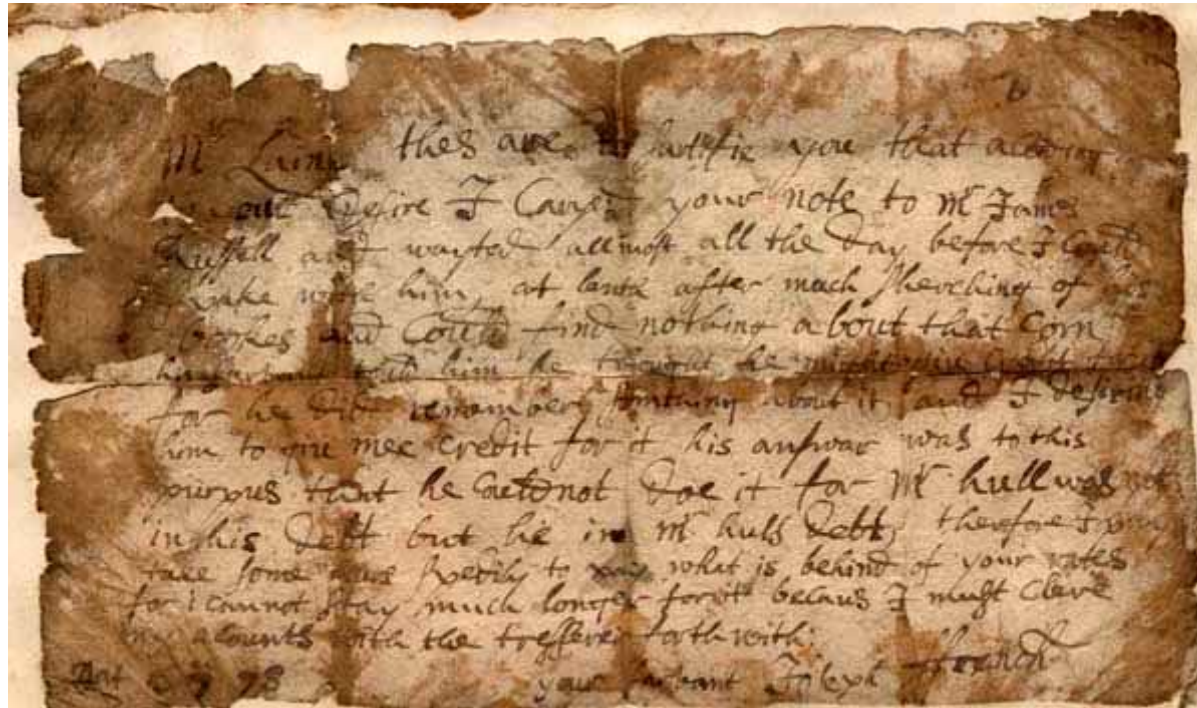 Mr thes are to sattifie you that
your desire I Caryed your note to Mr James
Russell and wayted allmost all the day before I Could
speake with him, at lenth after much sherching of his
bookes and Could find nothing about that Corn
told him he thought he might give
for he did remember somthing about it and I desired
him to give mee credit for it his answar was to this
purpus that he Could not doe it for Mr hull was not
in his debt but he in Mr hulls debt, therefore I
take some to pay what is behind of your rates
for i cannot stay much longer for it becaus I must Clere
my acounts with the tresserer forthwith
your sarvant Joseph